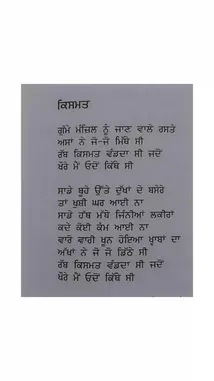 ਕਿਸਮਤ
ਗੁੰਮੇ ਮੰਜ਼ਿਲ ਨੂੰ ਜਾਣ ਵਾਲੇ ਰਸਤੇ
ਅਸਾਂ ਨੇ ਜੋ-ਜੋ ਮਿੱਥੇ ਸੀ
ਰੱਬ ਕਿਸਮਤ ਵੰਡਦਾ ਸੀ ਜਦੋਂ
ਖੌਰੇ ਮੈਂ ਓਦੋਂ ਕਿੱਥੇ ਸੀ
ਸਾਡੇ ਬੂਹੇ ਉੱਤੇ ਦੁੱਖਾਂ ਦੇ ਬਸੇਰੇ
ਤਾਂ ਖੁਸ਼ੀ ਘਰ ਆਈ ਨਾ
ਸਾਡੇ ਹੱਥ ਮੱਥੇ ਜਿੰਨੀਆਂ ਲਕੀਰਾਂ
ਕਦੇ ਕੋਈ ਕੰਮ ਆਈ ਨਾ
ਵਾਰੋ ਵਾਰੀ ਖੂਨ ਹੋਇਆ ਖ਼੍ਵਾਬਾਂ ਦਾ
ਅੱਖਾਂ ਨੇ ਜੋ ਜੋ ਡਿੱਠੇ ਸੀ
ਰੱਬ ਕਿਸਮਤ ਵੰਡਦਾ ਸੀ ਜਦੋਂ
ਖੌਰੇ ਮੈਂ ਓਦੋਂ ਕਿੱਥੇ ਸੀ